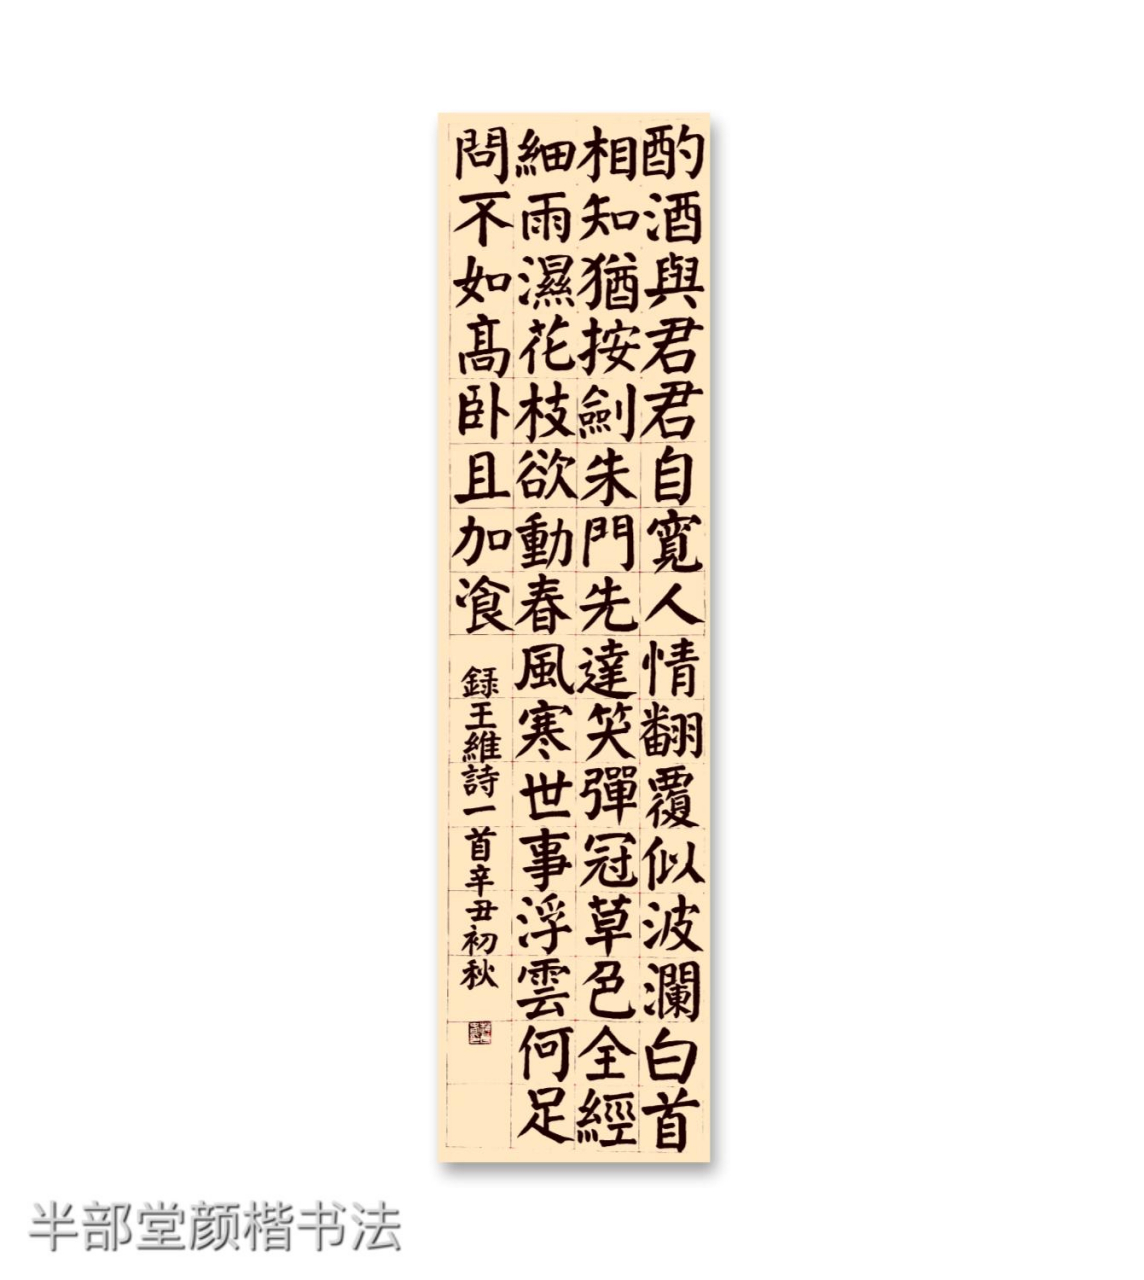 酌酒與君君自寬人情翻覆似波瀾白首
相知猶按劍朱門先達笑彈冠草色全經
細雨濕花枝欲動春風寒世事浮雲何足
問不如高卧且加湌
録王維詩一首辛丑初秋
半部堂颜楷书法